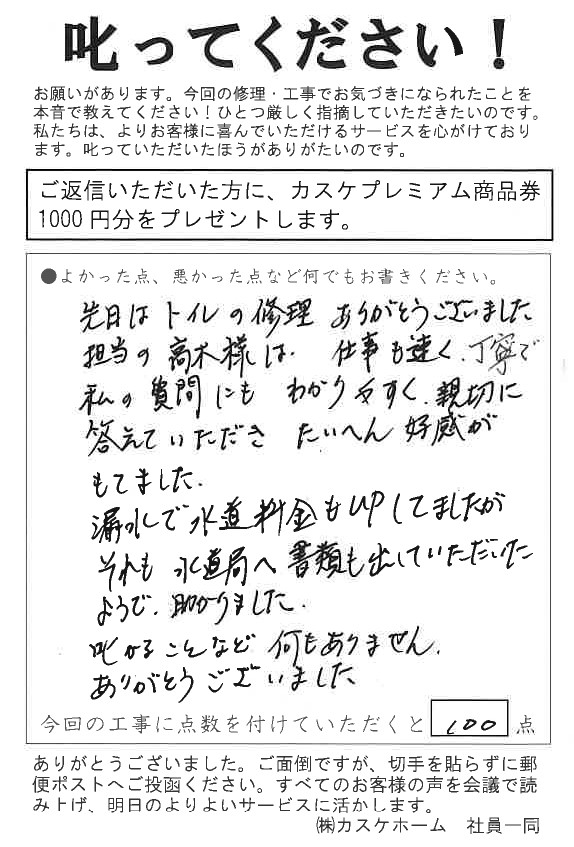 叱ってください！
お願いがあります。今回の修理・工事でお気づきになられたことを
本音で教えてください！ひとつ厳しく指摘していただきたいのです。
私たちは、よりお客様に喜んでいただけるサービスを心がけており
ます。叱っていただいたほうがありがたいのです。
ご返信いただいた方に、カスケプレミアム商品券
1000円分をプレゼントします。
●よかった点、悪かった点など何でもお書きください。
先日はトイレの修理 ありがとうございました
担当の高木様は、仕事も速く、丁寧で
私の質問にも わかりやすく、親切に
答えていただき たいへん好感が
もてました。
漏水で水道料金もUPしてましたが
それも水道局へ書類も出していただいた
ようで、助かりました。
叱かることなど何もありません。
ありがとうございました
今回の工事に点数を付けていただくと 100 点
ありがとうございました。ご面倒ですが、切手を貼らずに郵
便ポストへご投函ください。すべてのお客様の声を会議で読
み上げ、明日のよりよいサービスに活かします。
㈱カスケホーム 社員一同